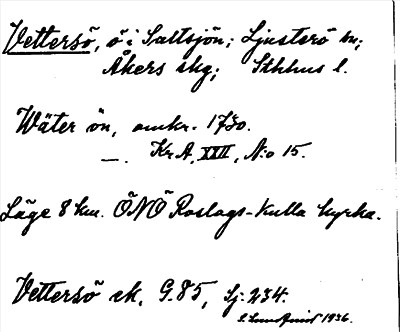 Vettersö, ö i Saltsjön; Ljusterö sn;
Åkers skg; Sthlms l.
Wäter ön, omkr. 1750.
—. Kr A, XXII, N:o 15.
Läge 8 km. ÖNÖ Roslags-Kulla kyrka.
Vettersö ek. G. 85, Sj. 234.
1936.